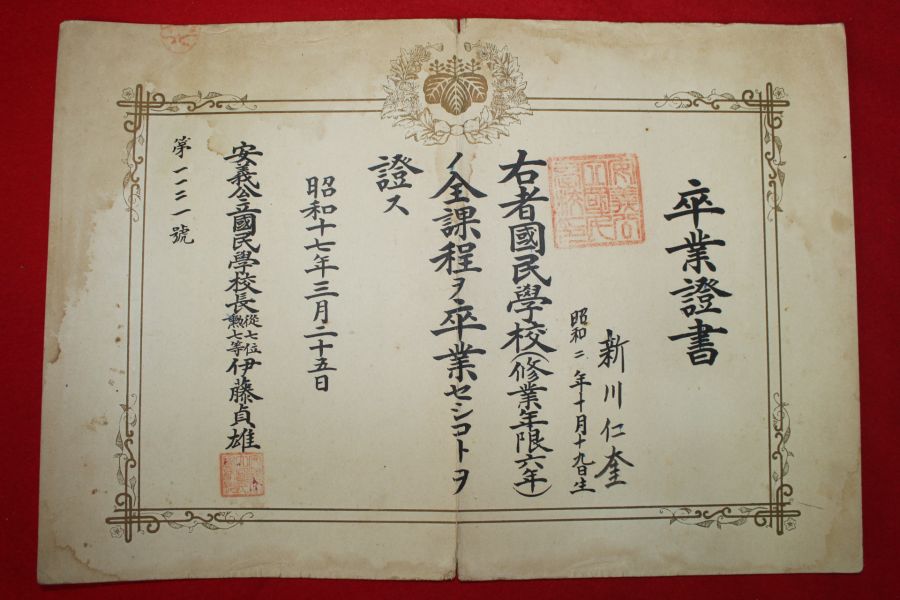 卒業證書
新川仁奎
昭和二年十月十九日生
右者國民學校(修業年限六年)
ノ全課程ヲ卒業セシコトヲ
證ス
昭和十七年三月二十五日
安義公立國民學校長從七位勲七等伊藤貞雄
第一一三一號